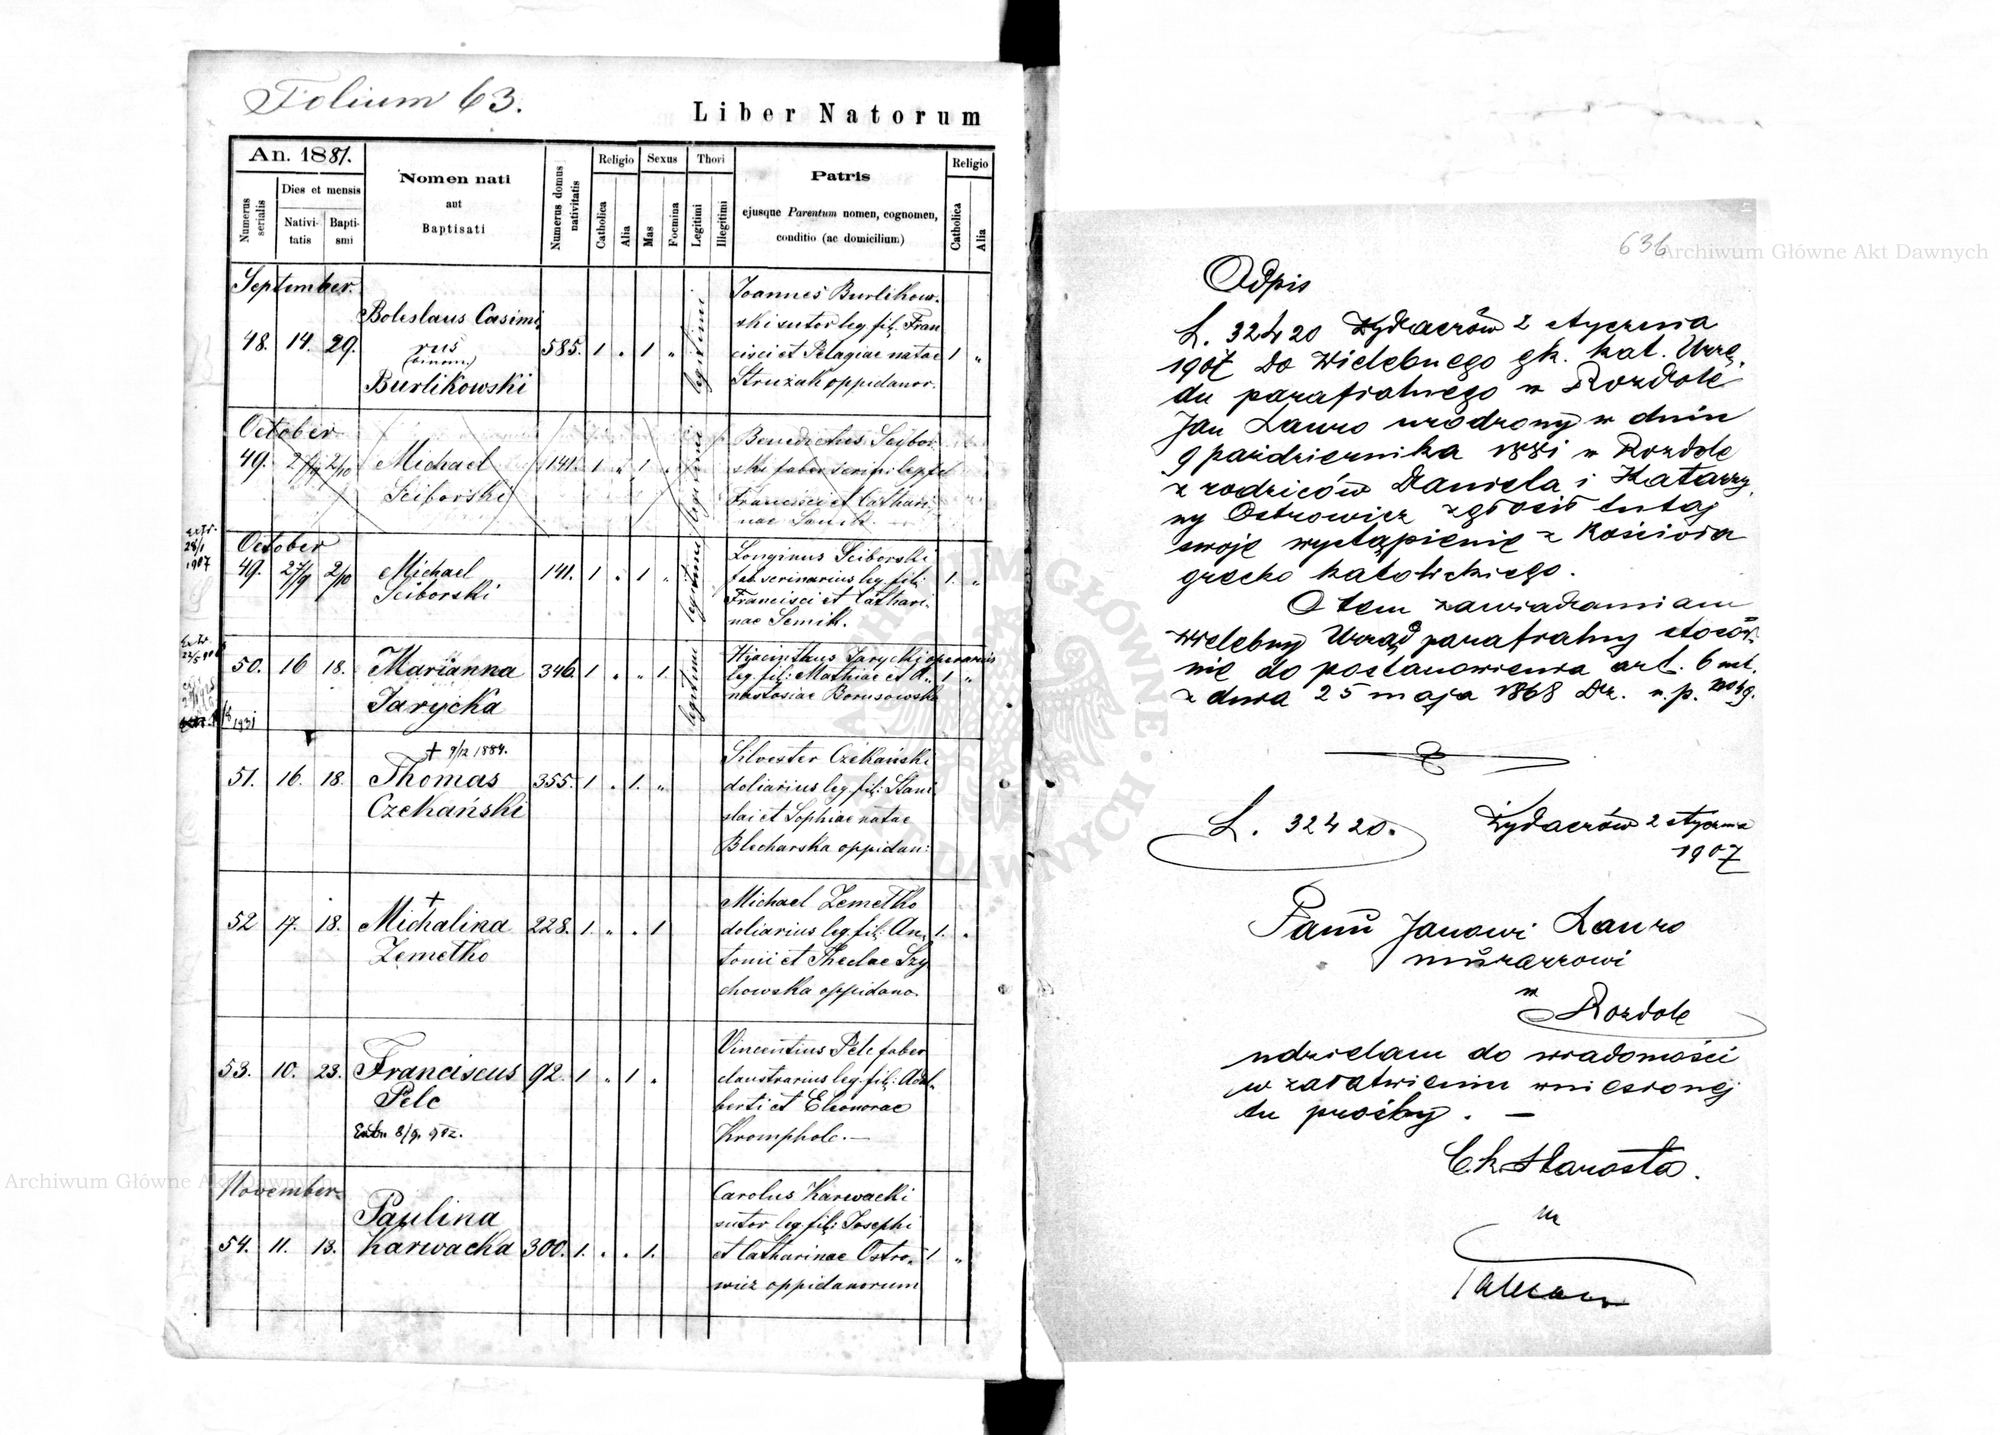 Folium 63.
Liber Natorum
An. 1881.
Numerus serialis
Dies et mensis
Nativitatis
Baptismi
Nomen nati
aut
Baptisati
Numerus domus nativitatis
Religio
Catholica
Alia
Sexus
Mas
Foemina
Thori
Legitimi
Illegitimi
Patris
ejusque Parentum nomen, cognomen,
conditio (ac domicilium)
Religio
Catholica
Alia
September.
48. 14. 29.
Boleslaus Casimi
rus
(binom.)
Burlikowski
585. 1 . 1 "
legitimi
Joannes Burlikow-
ski sutor leg. fil. Fran
cisci et Pelagiae natae
Strużak oppidanor.
1 "
October
49. 27/9 2/10
Michael
Sciborski
141. 1 " 1 "
legitimus
Benedictus Scibor
ski faber scrini leg fil
Francisci et Cathari-
nae Semik.
October
49. 27/9 2/10
Michael
Sciborski
141. 1 . 1 "
legitimus
Longinus Sciborski
fab. scrinarius leg. fil:
Francisci et Cathari-
nae Semik.
1. "
28/1
1907
50. 16 18.
Marianna
Jarycka
346. 1 " " 1
legitimi
Hyacinthus Jarycki operarius
leg. fil: Mathiae et A-
nastasiae Borusowska
1 "
1931
51. 16. 18.
+ 9/12 1884.
Thomas
Czekański
355. 1 . 1. "
Silvester Czekański
doliarius leg. fil: Stani
slai et Sophiae natae
Blecharska oppidan:
52 17. 18.
+
Michalina
Zemetko
228. 1. " . 1
Michael Zemetko
doliarius leg. fil: An-
tonii et Theclae Szy
chowska oppidano.
1. .
53. 10. 23.
Franciscus
Pelc
Extr. 8/9. 902.
92. 1 " 1 "
Vincentius Pelc faber
claustrarius leg. fil: Adal
berti et Eleonorae
Krompholc. —
November
54. 11. 13.
Paulina
Karwacka
300. 1. . . 1.
Carolus Karwacki
sutor leg. fil: Josephi
et Catharinae Ostro-
wicz oppidanorum
1 "
636
Odpis
L. 32420 Żydaczów 2 stycznia
1907 Do Wielebnego gk. kat. Urzę-
du parafialnego w Rozdole
Jan Lauro urodzony w dniu
9 października 1881 w Rozdole
z rodziców Daniela i Katarzy-
ny Ostrowicz zgłosił tutaj
swoje wystąpienie z kościoła
grecko katolickiego.
O tem zawiadamiam
Wielebny Urząd parafialny stosow-
nie do postanowienia art. 6 ust.
z dnia 25 maja 1868 Dz. u. p. No 49.
L. 32420.
Żydaczów 2 stycznia
1907
Panu Janowi Lauro
murarzowi
w
Rozdole
udzielam do wiadomości
w załatwieniu wniesionej
tu prośby. —
C.k. Starosta.
Archiwum Główne Akt Dawnych
Archiwum Główne Akt Dawnych
ARCHIWUM GŁÓWNE AKT DAWNYCH